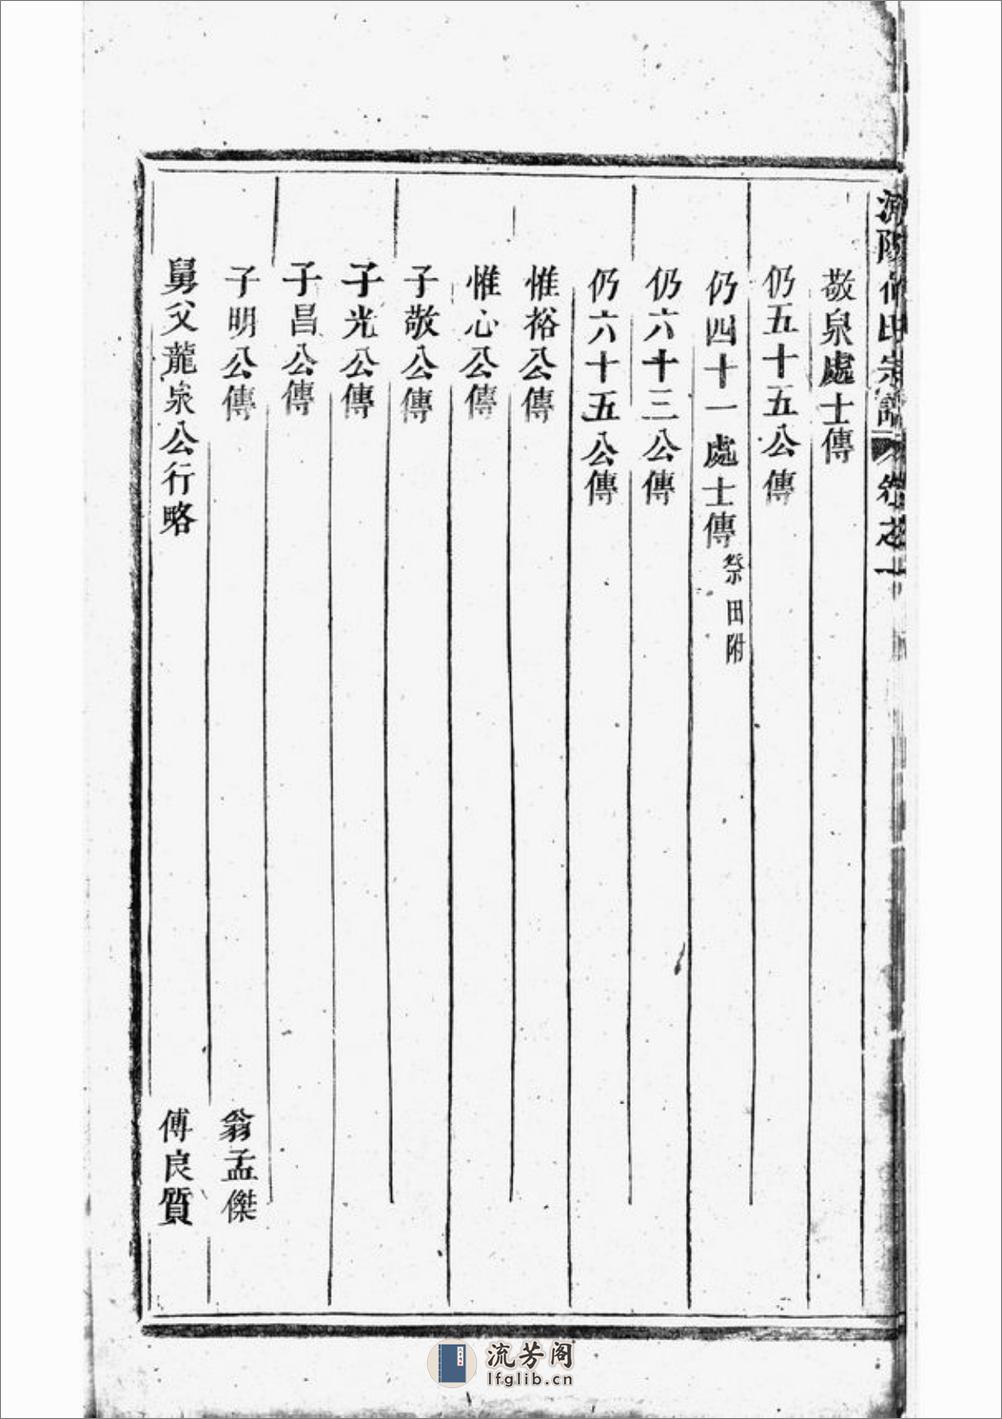 氏宗譜 卷之一
敬泉處士傳
仍五十五公傳
仍四十一處士傳 祭田附
仍六十三公傳
仍六十五公傳
惟裕公傳
惟心公傳
子敬公傳
子光公傳
子昌公傳
子明公傳 翁孟傑
舅父龍泉公行略 傅良質
流芳阁
lfglib.cn